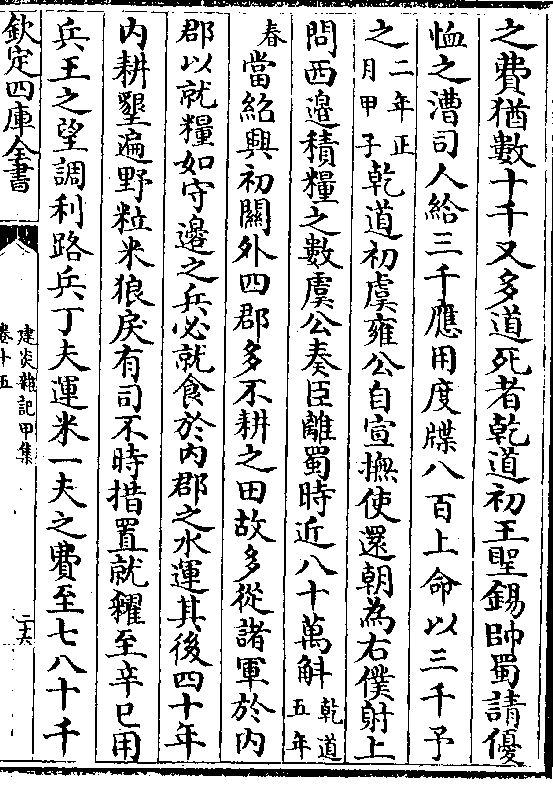 之費猶數十千又多道死者乾道初王聖錫帥蜀請優
恤之漕司人給三千應用度牒八百上命以三千予
之二年正月甲子乾道初虞雍公自宣撫使還朝為右僕射上
問西邉積糧之數虞公奏臣離蜀時近八十萬斛乾道五年
春當紹興初關外四郡多不耕之田故多從諸軍於内
郡以就糧如守邉之兵必就食於内郡之水運其後四十年
内耕墾遍野粒米狼戾有司不時措置就糴至辛巳用
兵王之望調利路兵丁夫運米一夫之費至七八十千
欽定四庫全書
建炎雜記甲集
卷十五
二六